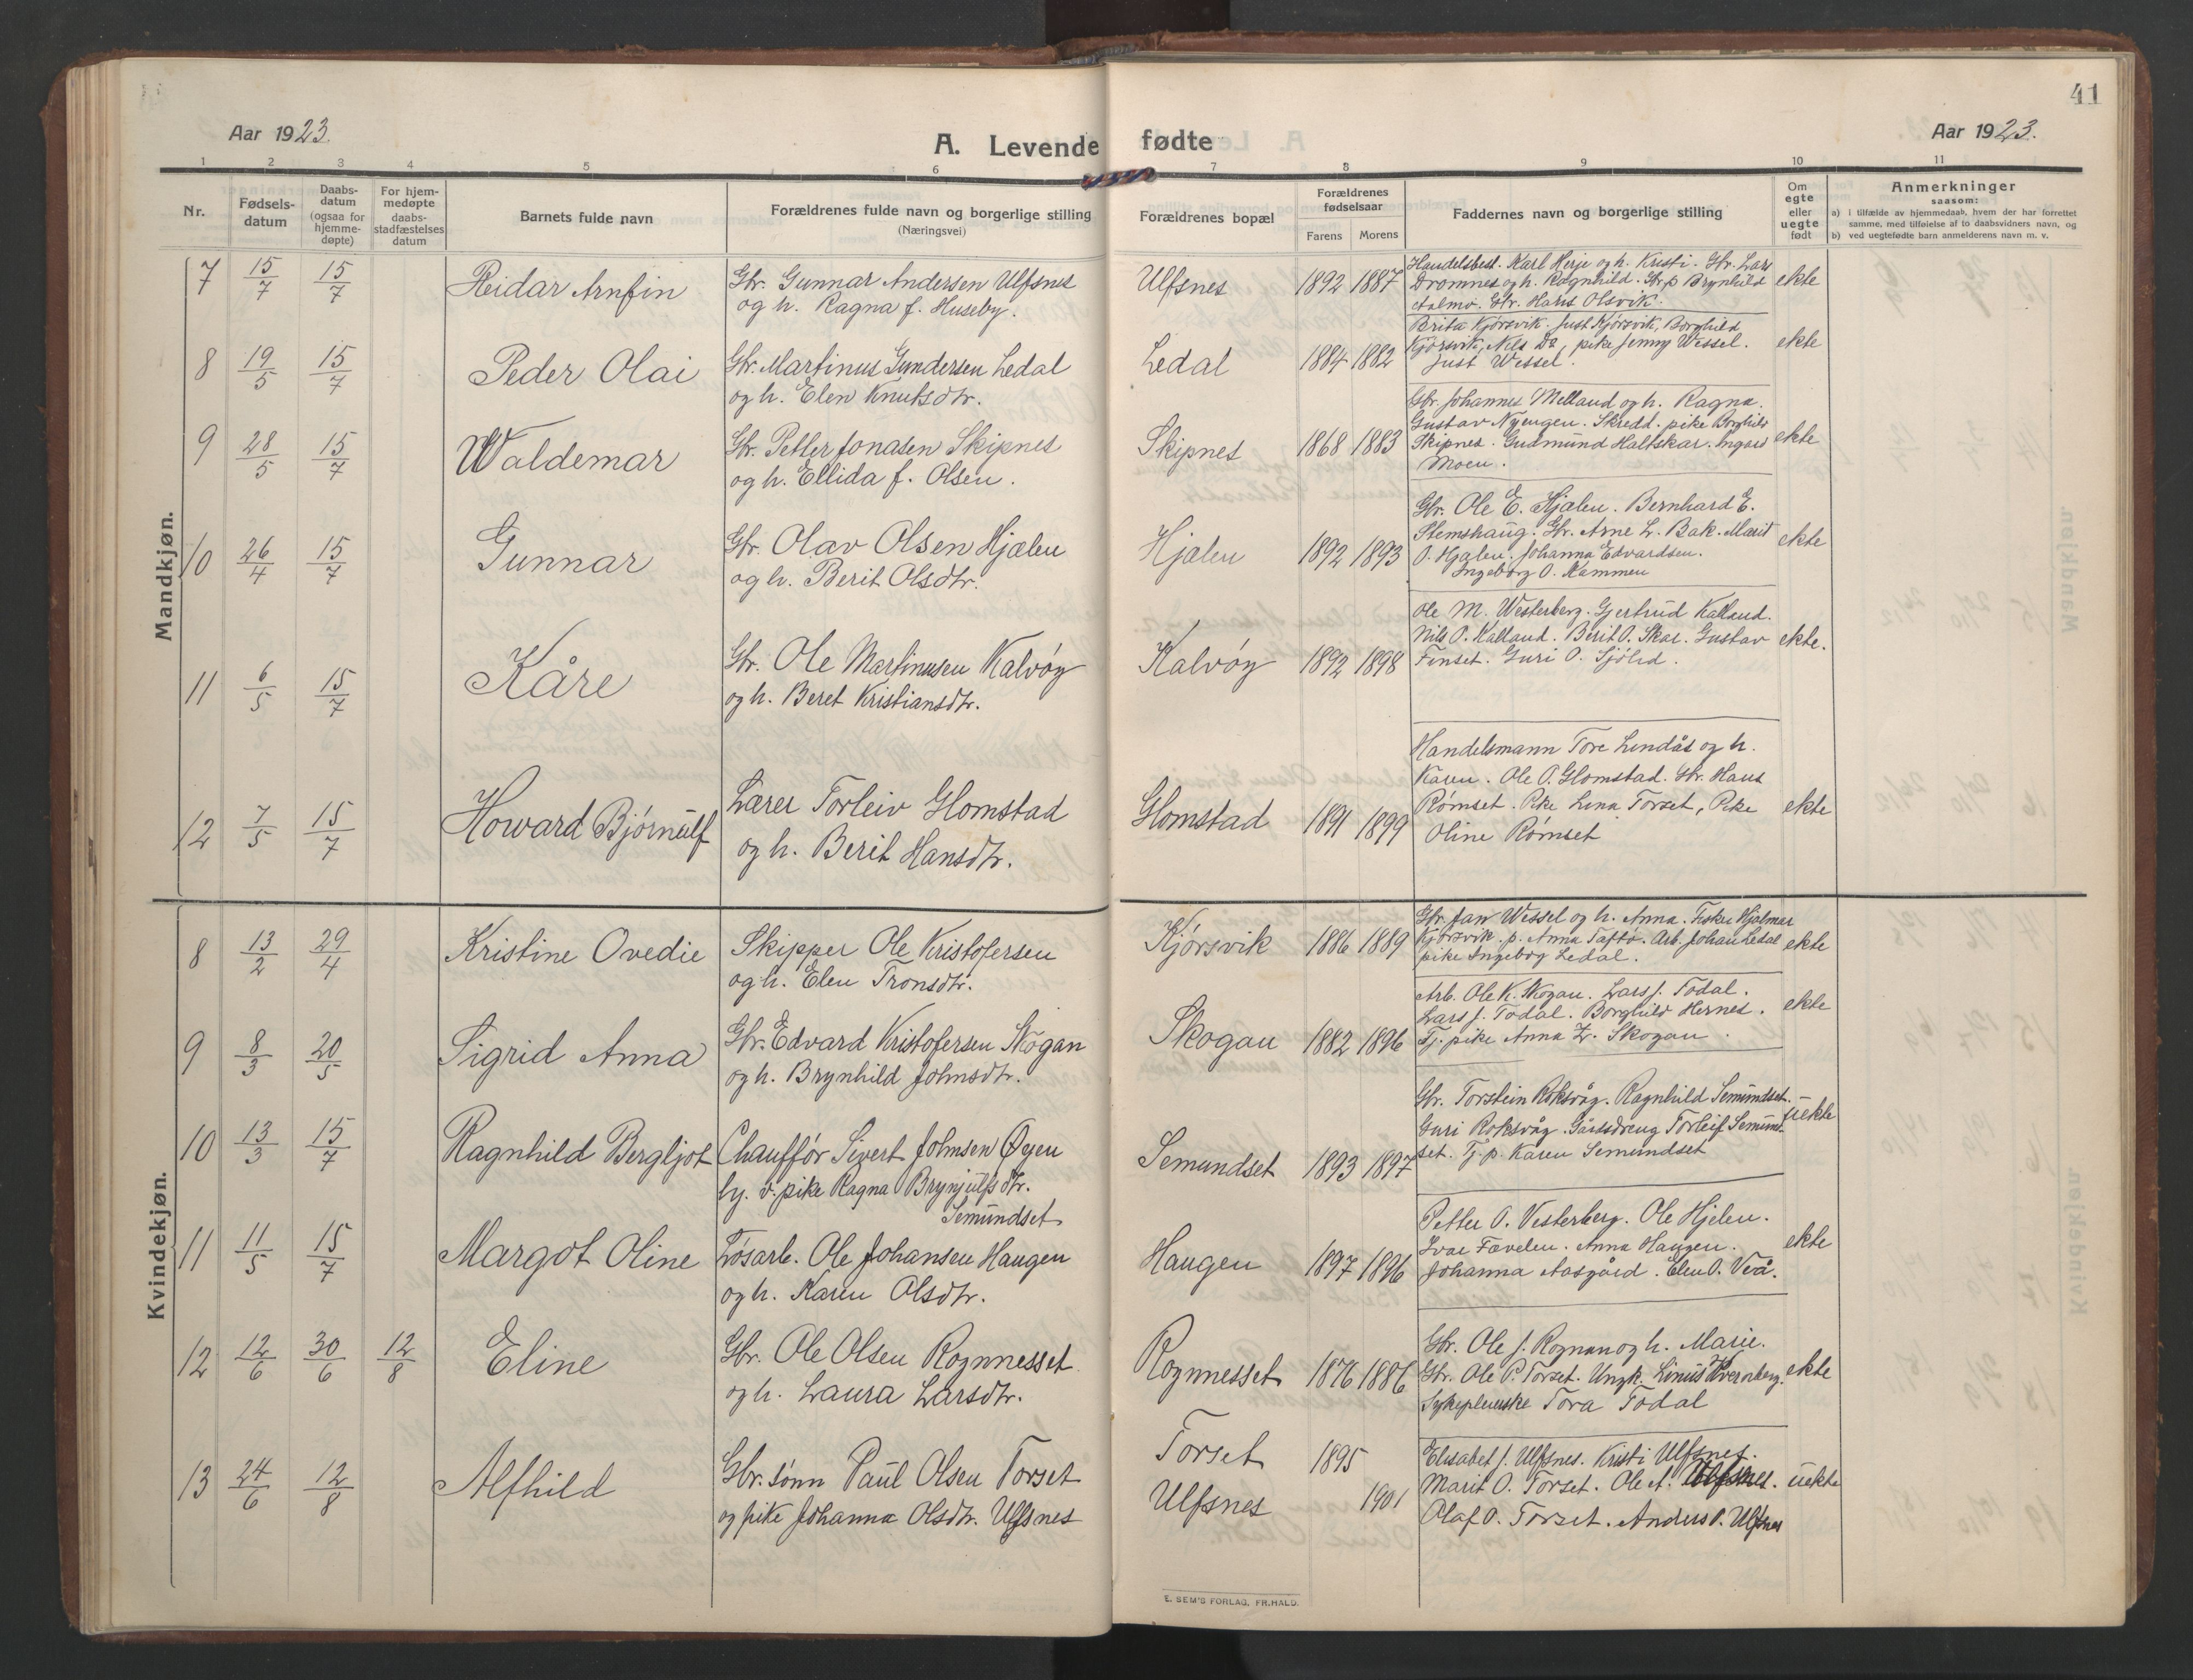 41
Aar 1923.
A. Levende fødte
Aar 1923.
1 2 3 4 5 6 7 8 9 10 11
Nr.
Fødsels-
datum
Daabs-
datum
(ogsaa for
hjemme-
døpte)
For hjem-
medøpte
daabs-
stadfæstelses
datum
Barnets fulde navn
Forældrenes fulde navn og borgerlige stilling
(Næringsvei)
Forældrenes bopæl
Forældrenes
fødselsaar
Farens Morens
Faddernes navn og borgerlige stilling
Om
egte
eller
uegte
født
Anmerkninger
saasom:
a) i tilfælde av hjemmedaab, hvem der har forrettet
samme, med tilføielse af to daabsvidners navn, og
b) ved uegtefødte barn anmelderens navn m. v.
Mandkjøn.
7 15/7 15/7 Reidar Arnfin
Gbr. Gunnar Andersen Ulfsnes
og h. Ragna f. Huseby.
Ulfsnes 1892 1887
Handelsbest. Karl Herje og h. Kristi. Gbr. Lars
Dromnes og h. Ragnhild. Gbr p Brynhild
Aalmo. Gbr. Hans Olsvik.
ekte
8 19/5 15/7 Peder Olai
Gbr. Martinus Gundersen Ledal
og h. Elen Knutsdtr.
Ledal 1884 1882
Brita Kjørsvik. Just Kjørsvik, Borghild
Kjørsvik, Nils Do, pike Jenny Wessel.
Just Wessel.
ekte
9 28/5 15/7 Waldemar
Gbr. Petter Jonasen Skipnes
og h. Ellida f. Olsen.
Skipnes 1868 1883
Gbr. Johannes Melland og h. Ragna.
Gustav Nyengen. Skredd. pike Borghild
Skipnes. Gudmund Haltskar. Ingard
Moen.
ekte
10 26/4 15/7 Gunnar
Gbr. Olav Olsen Hjælen
og h. Berit Olsdtr.
Hjælen 1892 1893
Gbr. Ole E. Hjælen. Bernhard E.
Stemshaug. Gbr. Arne L. Bak. Marit
O. Hjælen. Johanna Edvardsen.
Ingeborg O. Kammen
ekte
11 6/5 15/7 Kåre
Gbr. Ole Martinusen Kalvøy
og h. Beret Kristiansdtr.
Kalvøy 1892 1898
Ole M. Westerberg. Gjertrud Kalland.
Nils P. Kalland. Berit O. Skar. Gustav
Finset. Guri O. Sjølid.
ekte.
12 7/5 15/7 Howard Bjørnulf
Lærer Torleiv Glomstad
og h. Berit Hansdtr.
Glomstad 1891 1899
Handelsmann Tore Lendås og h.
Karen. Ole O. Glomstad. Gbr. Hans
Rømset. Pike Lina Torset, Pike
Oline Rømset
ekte
Kvindekjøn.
8 13/2 29/4 Kristine Ovedie
Skipper Ole Kristofersen
og h. Elen Tronsdtr.
Kjørsvik 1886 1889
Gbr. Jan Wessel og h. Anna. Fisker Hjalmar
Kjørsvik. p. Anna Taftø. Arb. Johan Ledal
pike Ingebog Ledal.
ekte
9 8/3 20/5 Sigrid Anna
Gbr. Edvard Kristofersen Skogan
og h. Brynhild Johnsdtr.
Skogan 1882 1896
Arb. Ole K. Skogan. Lars J. Todal.
Lars J. Todal. Borghild Hernes.
Tj. pike Anna Z. Skogan.
ekte
10 13/3 15/7 Ragnhild Bergljot
Chauffør Sivert Johnsen Øyen
og v. pike Ragna Brynjulfsdtr.
Semundset
Semundset 1893 1897
Gbr. Torstein Roksvåg. Ragnhild Semundset.
Guri Roksvåg. Gårdsdreng Torleif Semund-
set. Tj. p. Karen Semundset
uekte
11 11/5 15/7 Margot Oline
Løsarb. Ole Johansen Haugen
og h. Karen Olsdtr.
Haugen 1897 1896
Petter O. Vesterberg. Ole Hjelen.
Ivar Fævelen. Anna Haugen.
Johanna Aasgård. Elen O. Veå.
ekte
12 12/6 30/6 12/8 Eline
Gbr. Ole Olsen Rognnesset
og h. Laura Larsdtr.
Rognnesset 1876 1886
Gbr. Ole J. Rognan og h. Marie.
Gbr. Ole P. Torset. Ungk. Linus Kvernberg.
Sykepleierske Tora Todal
ekte
13 24/6 12/8 Alfhild
Gbr. sønn Paul Olsen Torset
og pike Johanna Olsdtr. Ulfsnes
Torset 1895
Ulfsnes 1901
Elisabet J. Ulfsnes. Kristi Ulfsnes.
Marit O. Torset. Ole A. Ulfsnes.
Olaf O. Torset. Anders O. Ulfsnes
uekte
E. SEM'S FORLAG, FR.HALD.